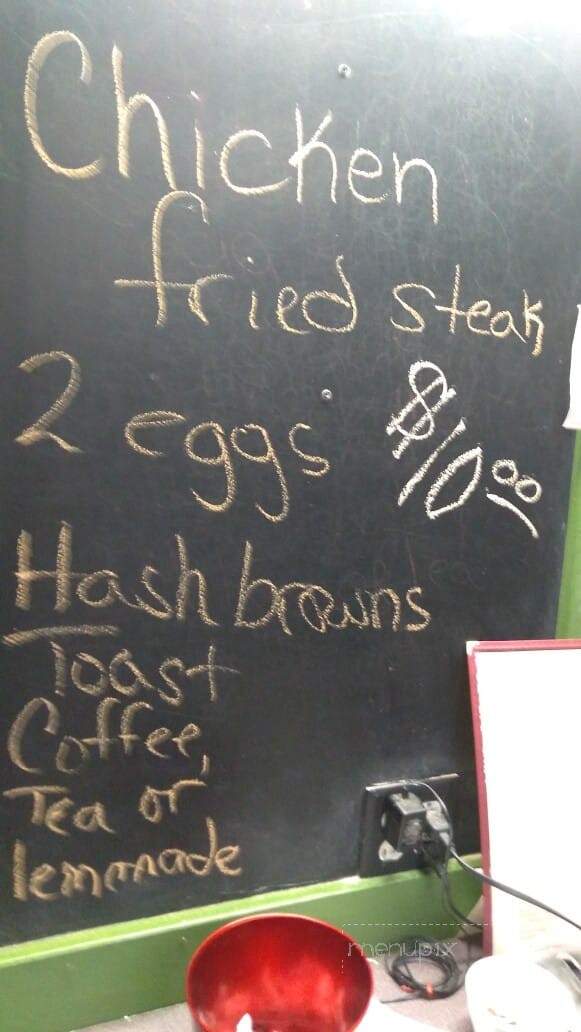 Chicken
fried steak
2 eggs $10.00
Hash browns
Toast
Coffee,
Tea or
lemmade
menupix